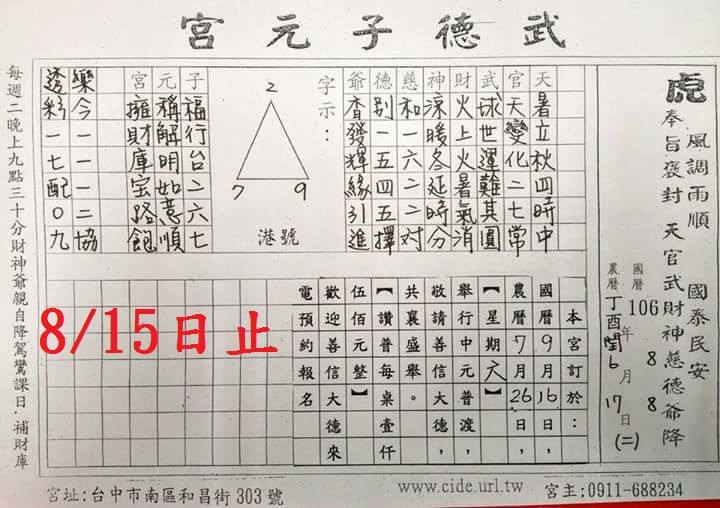 武德子元宮
虎
風調雨順 國泰民安
奉旨褒封 天官武財神慈德爺降
國曆106年8月8日
農曆丁酉閏6月17日(二)
天暑立秋四時中
官天變化二七常
武球世運難其圓
財火上火暑氣消
神涼暖冬延時分
慈和一六二二对
德別一五四五擇
爺杳發輝緣引進
字示:
2
7 9
港號
子福行台二六七
元稱解明如意順
宮擁財庫宝路飽
樂今一一一二協
透彩一七配0九
本宮訂於:
國曆9月16日,
農曆7月26日,
【星期六】
舉行中元普渡,
敬請善信大德,
共襄盛舉。
【讚普每桌壹仟
伍佰元整】
歡迎善信大德來
電預約報名
8/15日止
每週二晚上九點三十分財神爺親自降駕鸞課日.補財庫
宮址:台中市南區和昌街303號
www.cide.url.tw
宮主:0911-688234